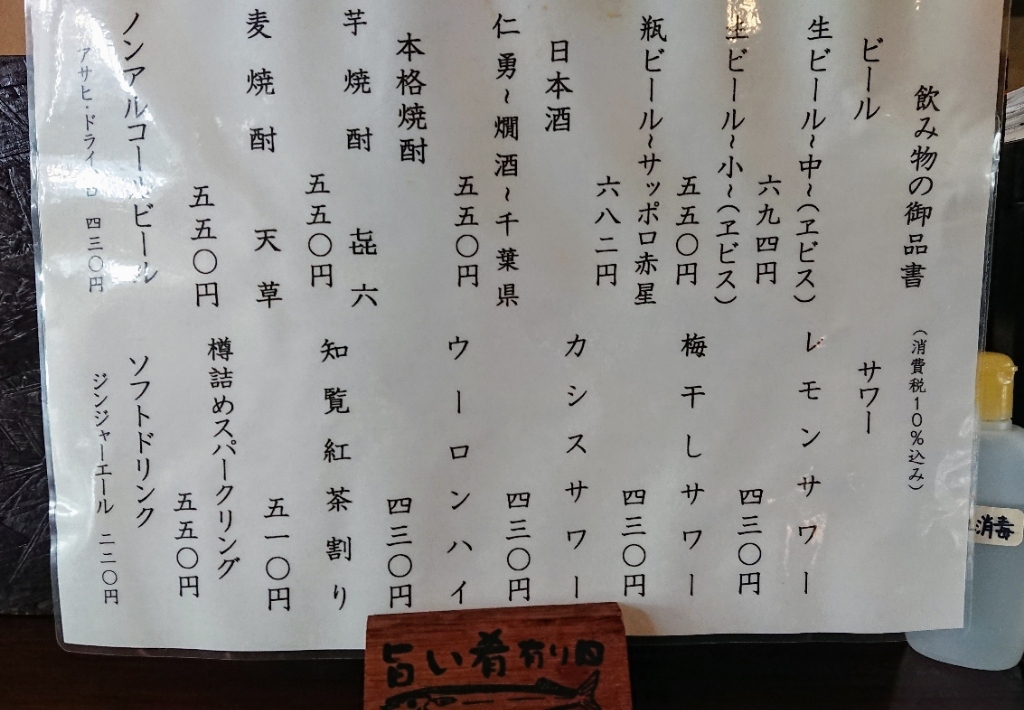 飲み物の御品書
(消費税10%込み)
ビール
生ビール~中~(ヱビス)
六九四円
生ビール~小~(ヱビス)
五五〇円
瓶ビール~サッポロ赤星
六八二円
日本酒
仁勇~燗酒~千葉県
五五〇円
本格焼酎
芋焼酎 㐂六
五五〇円
麦焼酎 天草
五五〇円
ノンアルコールビール
アサヒ・ドライゼロ 四三〇円
サワー
レモンサワー
四三〇円
梅干しサワー
四三〇円
カシスサワー
四三〇円
ウーロンハイ
四三〇円
知覧紅茶割り
五一〇円
樽詰めスパークリング
五五〇円
ソフトドリンク
ジンジャーエール 二二〇円
消毒
旨い肴有り〼